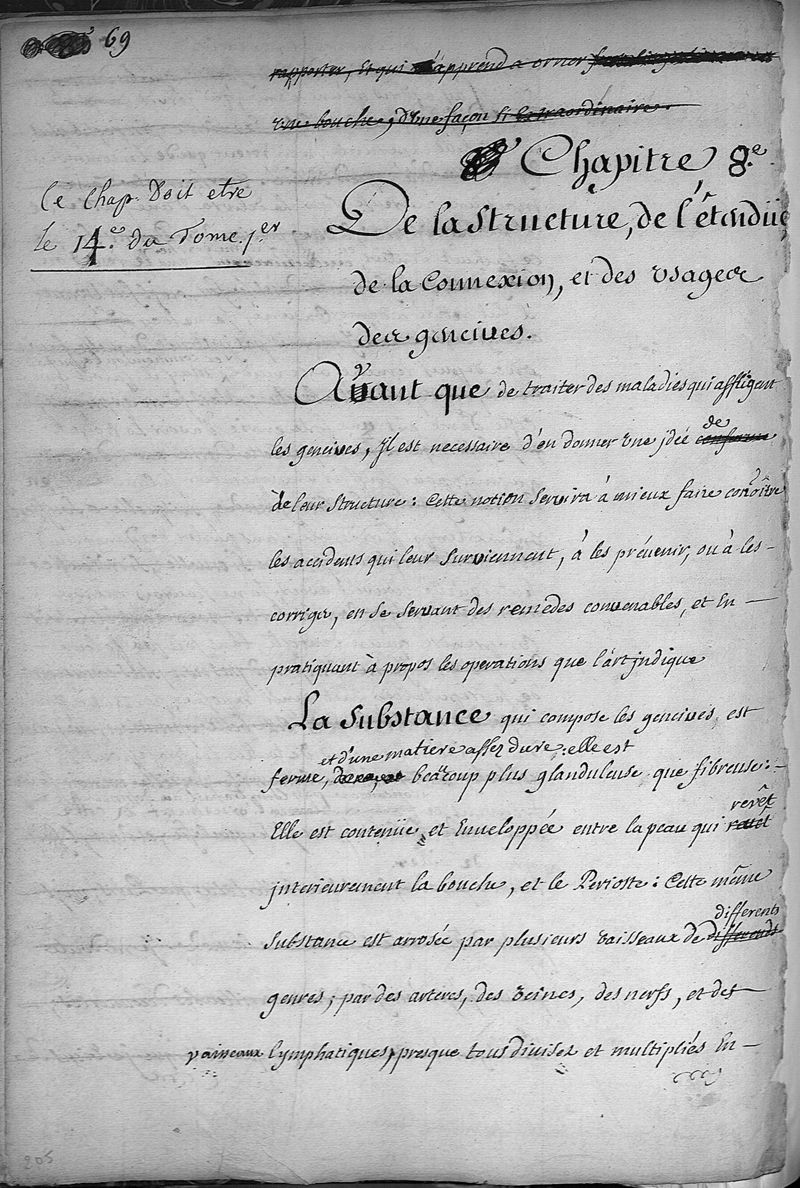 69
rapporter, et qui apprend a orner
une bouche, d'une façon si extraordinaire.
Chapitre 8.e
Ce Chap. Doit etre
le 14.e du Tome 1.er
De la Structure, de l'êtenduë
de la Connexion, et des usages
des gencives.
Avant que de traiter des maladies qui affligent
de
les gencives, Il est necessaire d'en donner une jdée conforme
de leur Structure : Cette notion Servira à mieux faire conoître
les accidents qui leur Surviennent, à les prévenir, ou à les -
corriger, en se Servant des remedes convenables, et En -
pratiquant à propos les operations que l'art jndique
La Substance qui compose les gencives, est
et d'une matiere assez dure : elle est
ferme, beaucoup plus glanduleuse que fibreuse : -
revêt
Elle est contenüe, et Enveloppée entre la peau qui
jnterieurement la bouche, et le Perioste : Cette même
differents
Substance est arrosée par plusieurs vaisseaux de differends
genres ; par des arteres, des veines, des nerfs, et des
vaisseaux lymphatiques, presque tous divisez et multipliés En -
205